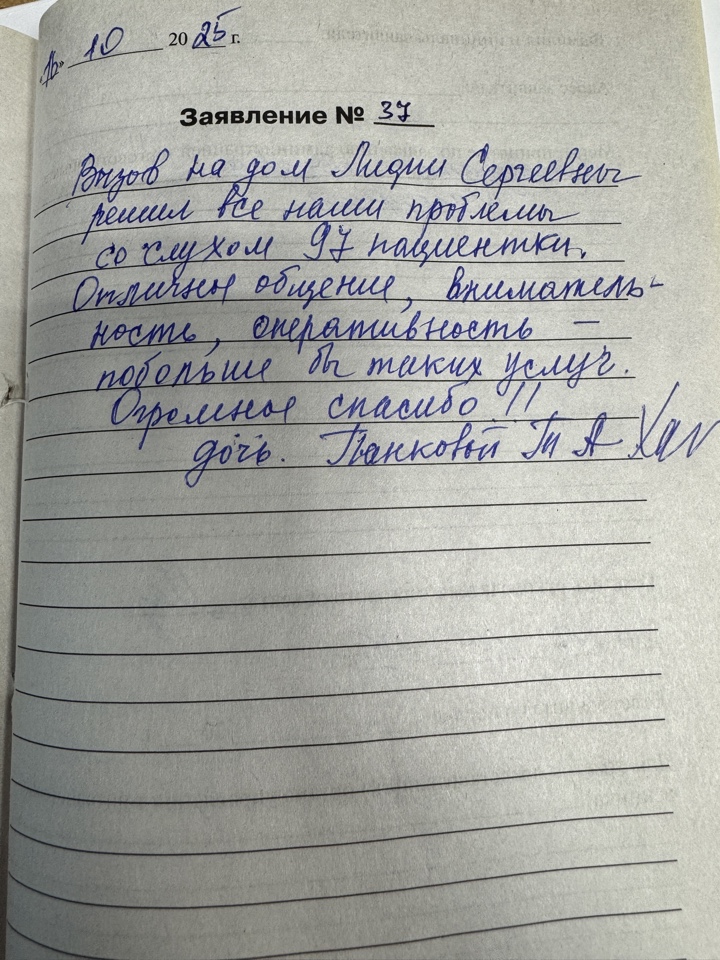 «16» 10 2025 г.
Заявление № 37
Вызов на дом Лидии Сергеевны
решил все наши проблемы
со слухом 97 пациентки.
Отличное общение, вниматель-
ность, оперативность –
побольше бы таких услуг.
Огромное спасибо!!
дочь. Панковой Т А